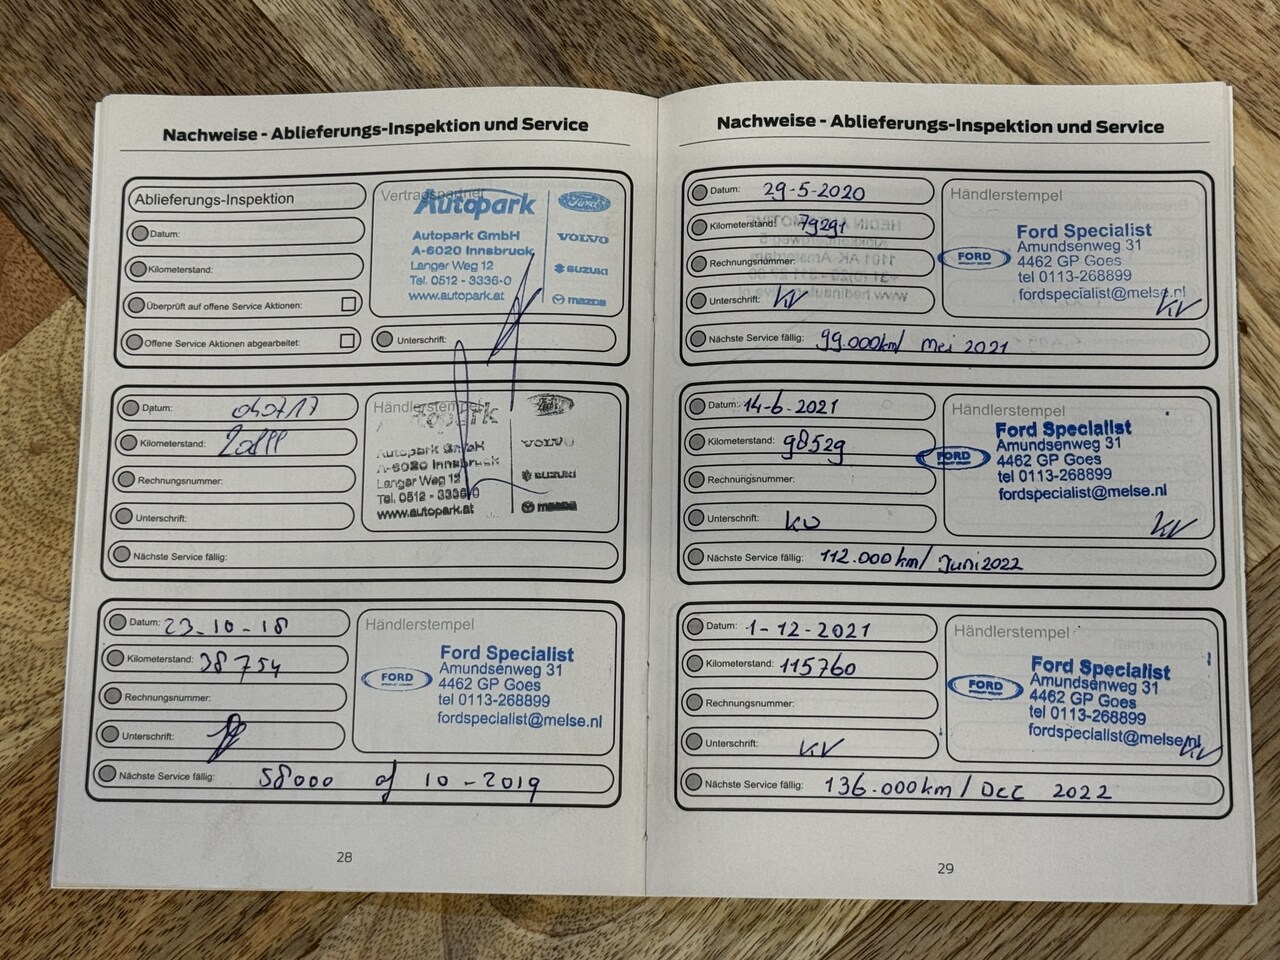 Nachweise - Ablieferungs-Inspektion und Service
Ablieferungs-Inspektion
Datum:
Kilometerstand:
Überprüft auf offene Service Aktionen:
Offene Service Aktionen abgearbeitet:
Vertragspartner
Autopark
Autopark GmbH
A-6020 Innsbruck
Langer Weg 12
Tel. 0512 - 3336-0
www.autopark.at
Ford
VOLVO
SUZUKI
mazda
Unterschrift:
Datum: 040717
Kilometerstand:
Rechnungsnummer:
Unterschrift:
Nächste Service fällig:
Händlerstempel
Autopark
Autopark GmbH
A-6020 Innsbruck
Langer Weg 12
Tel. 0512 - 3336-0
www.autopark.at
VOLVO
SUZUKI
mazda
Datum: 23-10-18
Kilometerstand: 38754
Rechnungsnummer:
Unterschrift:
Nächste Service fällig: 58000 of 10-2019
Händlerstempel
FORD
Ford Specialist
Amundsenweg 31
4462 GP Goes
tel 0113-268899
fordspecialist@melse.nl
28
Nachweise - Ablieferungs-Inspektion und Service
Datum: 29-5-2020
Kilometerstand: 79291
Rechnungsnummer:
Unterschrift: KV
Nächste Service fällig: 99.000km/ Mei 2021
Händlerstempel
FORD
Ford Specialist
Amundsenweg 31
4462 GP Goes
tel 0113-268899
fordspecialist@melse.nl
KV
Datum: 14-6-2021
Kilometerstand: 98529
Rechnungsnummer:
Unterschrift: KV
Nächste Service fällig: 112.000km/ Juni 2022
Händlerstempel
FORD
Ford Specialist
Amundsenweg 31
4462 GP Goes
tel 0113-268899
fordspecialist@melse.nl
KV
Datum: 1-12-2021
Kilometerstand: 115760
Rechnungsnummer:
Unterschrift: KV
Nächste Service fällig: 136.000km/ Dec 2022
Händlerstempel
FORD
Ford Specialist
Amundsenweg 31
4462 GP Goes
tel 0113-268899
fordspecialist@melse.nl
KV
29